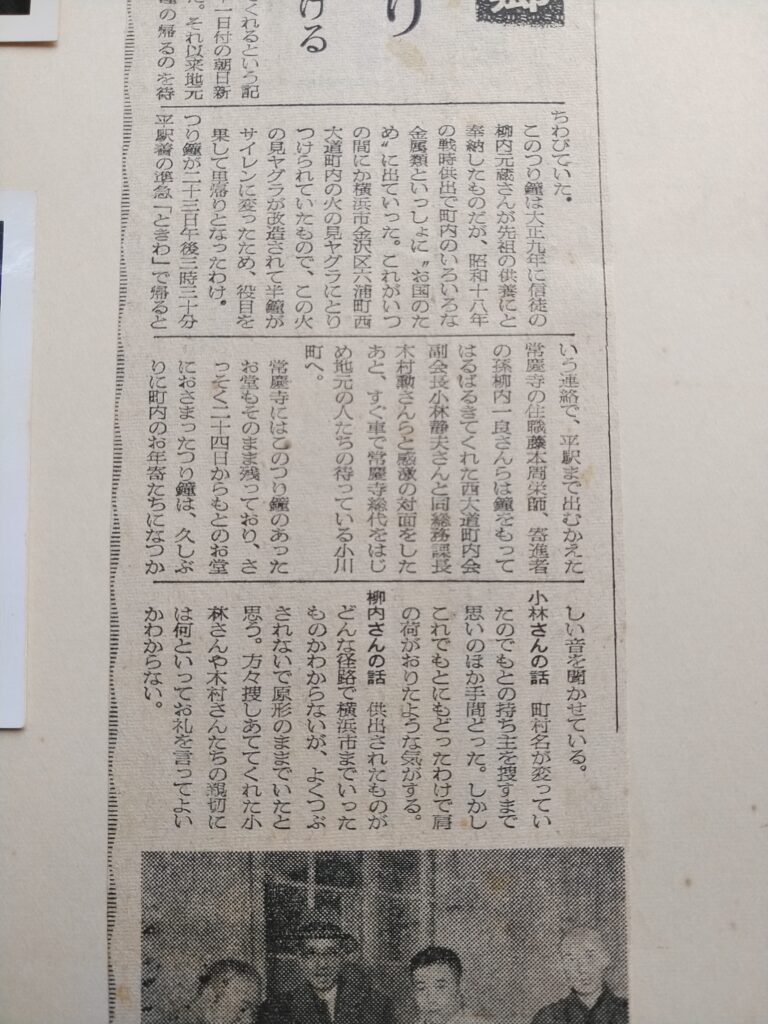 郷
り
ける
くれるという記
一日付の朝日新
た。それ以来地元
鐘の帰るのを待
ちわびていた。
このつり鐘は大正九年に信徒の
柳内元蔵さんが先祖の供養にと
奉納したものだが、昭和十八年
の戦時供出で町内のいろいろな
金属類といっしょに〝お国のた
め〟に出ていった。これがいつ
の間にか横浜市金沢区六浦町西
大道町内の火の見ヤグラにとり
つけられていたもので、この火
の見ヤグラが改造されて半鐘が
サイレンに変ったため、役目を
果して里帰りとなったわけ。
つり鐘が二十三日午後三時三十分
平駅着の準急「ときわ」で帰ると
いう連絡で、平駅まで出むかえた
常慶寺の住職藤本周栄師、寄進者
の孫柳内一良さんらは鐘をもって
はるばるきてくれた西大道町内会
副会長小林静夫さんと同総務課長
木村勲さんらと感激の対面をした
あと、すぐ車で常慶寺総代をはじ
め地元の人たちの待っている小川
町へ。
常慶寺にはこのつり鐘のあった
お堂もそのまま残っており、さ
っそく二十四日からもとのお堂
におさまったつり鐘は、久しぶ
りに町内のお年寄たちになつか
しい音を聞かせている。
小林さんの話　町村名が変ってい
たのでもとの持ち主を捜すまで
思いのほか手間どった。しかし
これでもとにもどったわけで肩
の荷がおりたような気がする。
柳内さんの話　供出されたものが
どんな径路で横浜市までいった
ものかわからないが、よくつぶ
されないで原形のままでいたと
思う。方々捜しあててくれた小
林さんや木村さんたちの親切に
は何といってお礼を言ってよい
かわからない。